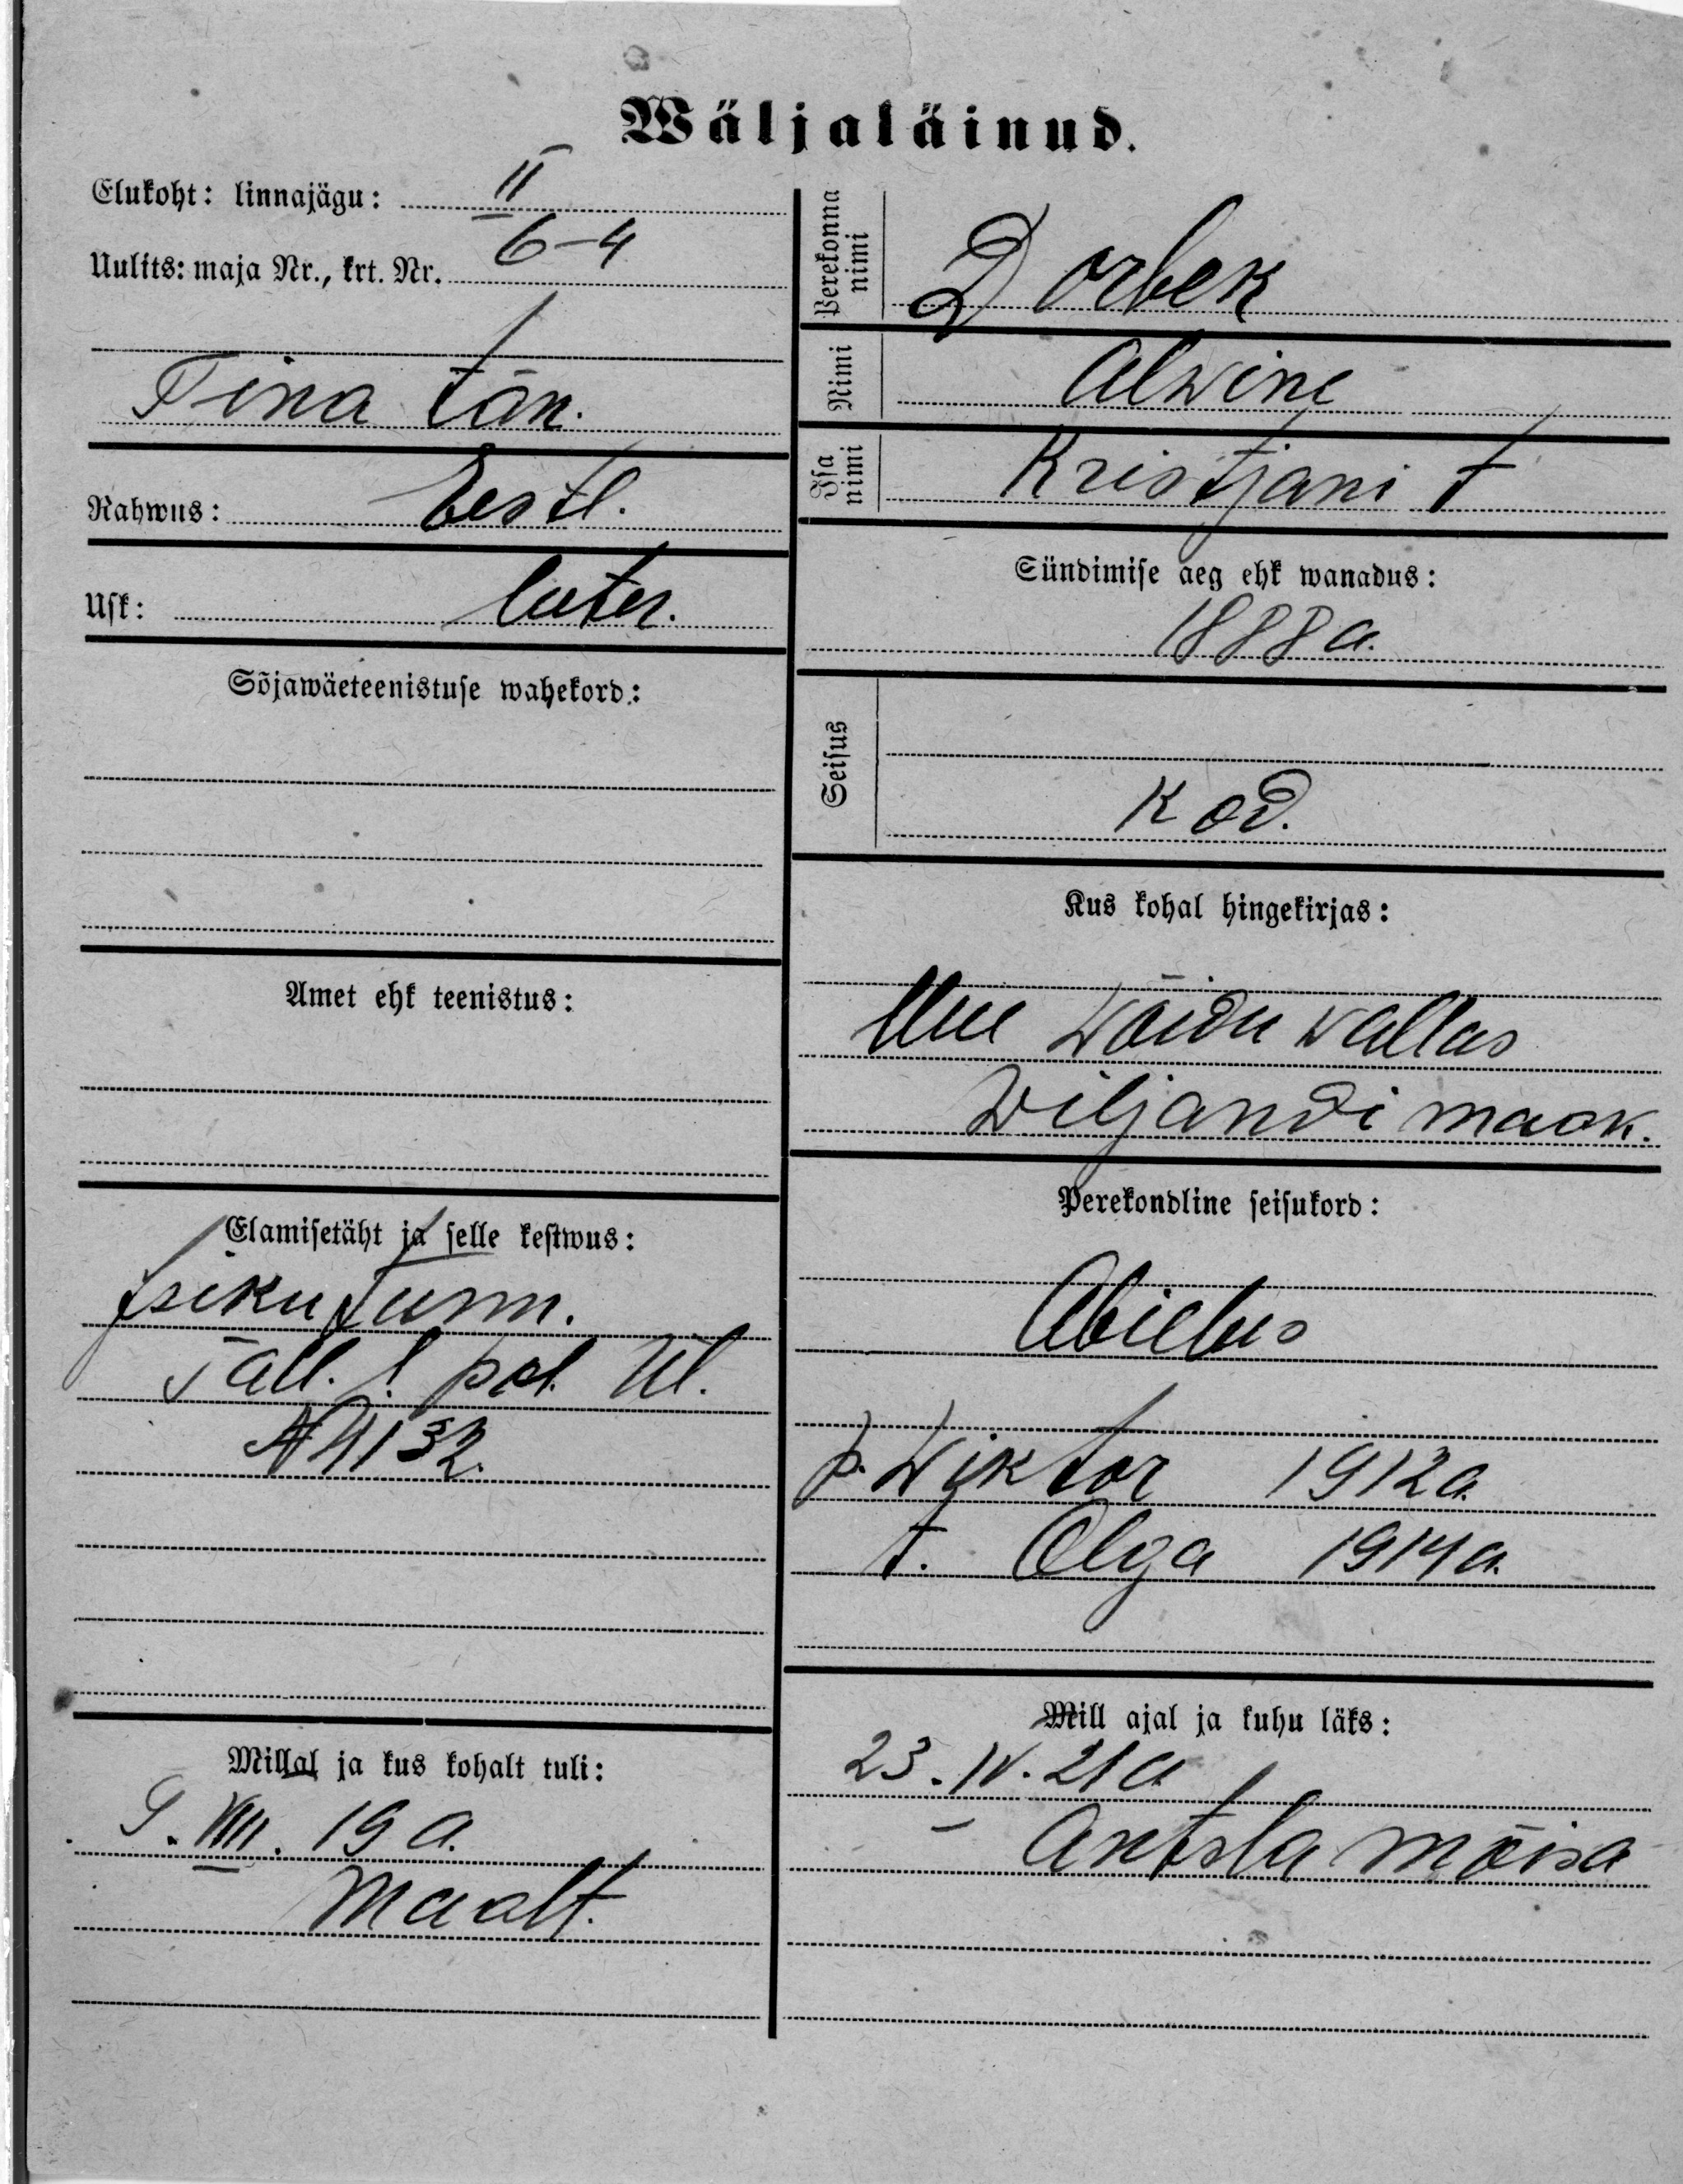 Wäljaläinud.
Elukoht: linnajägu: II
Uulits: maja Nr., krt. Nr. 6-4
Tina tän.
Rahwus: Eestl.
Usk: luter.
Sõjawäeteenistuse wahekord:
Amet ehk teenistus:
Elamisetäht ja selle kestwus:
Isiku tunn.
Tall. l. pol. Ül.
№ 4132.
Millal ja kus kohalt tuli:
9. VIII. 19 a.
Maalt.
Perekonna nimi Dorbek
Nimi Alwine
Isa nimi Kristjani t
Sündimise aeg ehk wanadus:
1888 a.
Seisus
kod.
Kus kohal hingekirjas:
Uue Wõidu wallas
Wiljandi maak.
Perekondline seisukord:
Abielus
p. Wiktor 1912 a.
t. Olga 1914 a.
Mill ajal ja kuhu läks:
23. IV. 21 a
Antsla mõisa